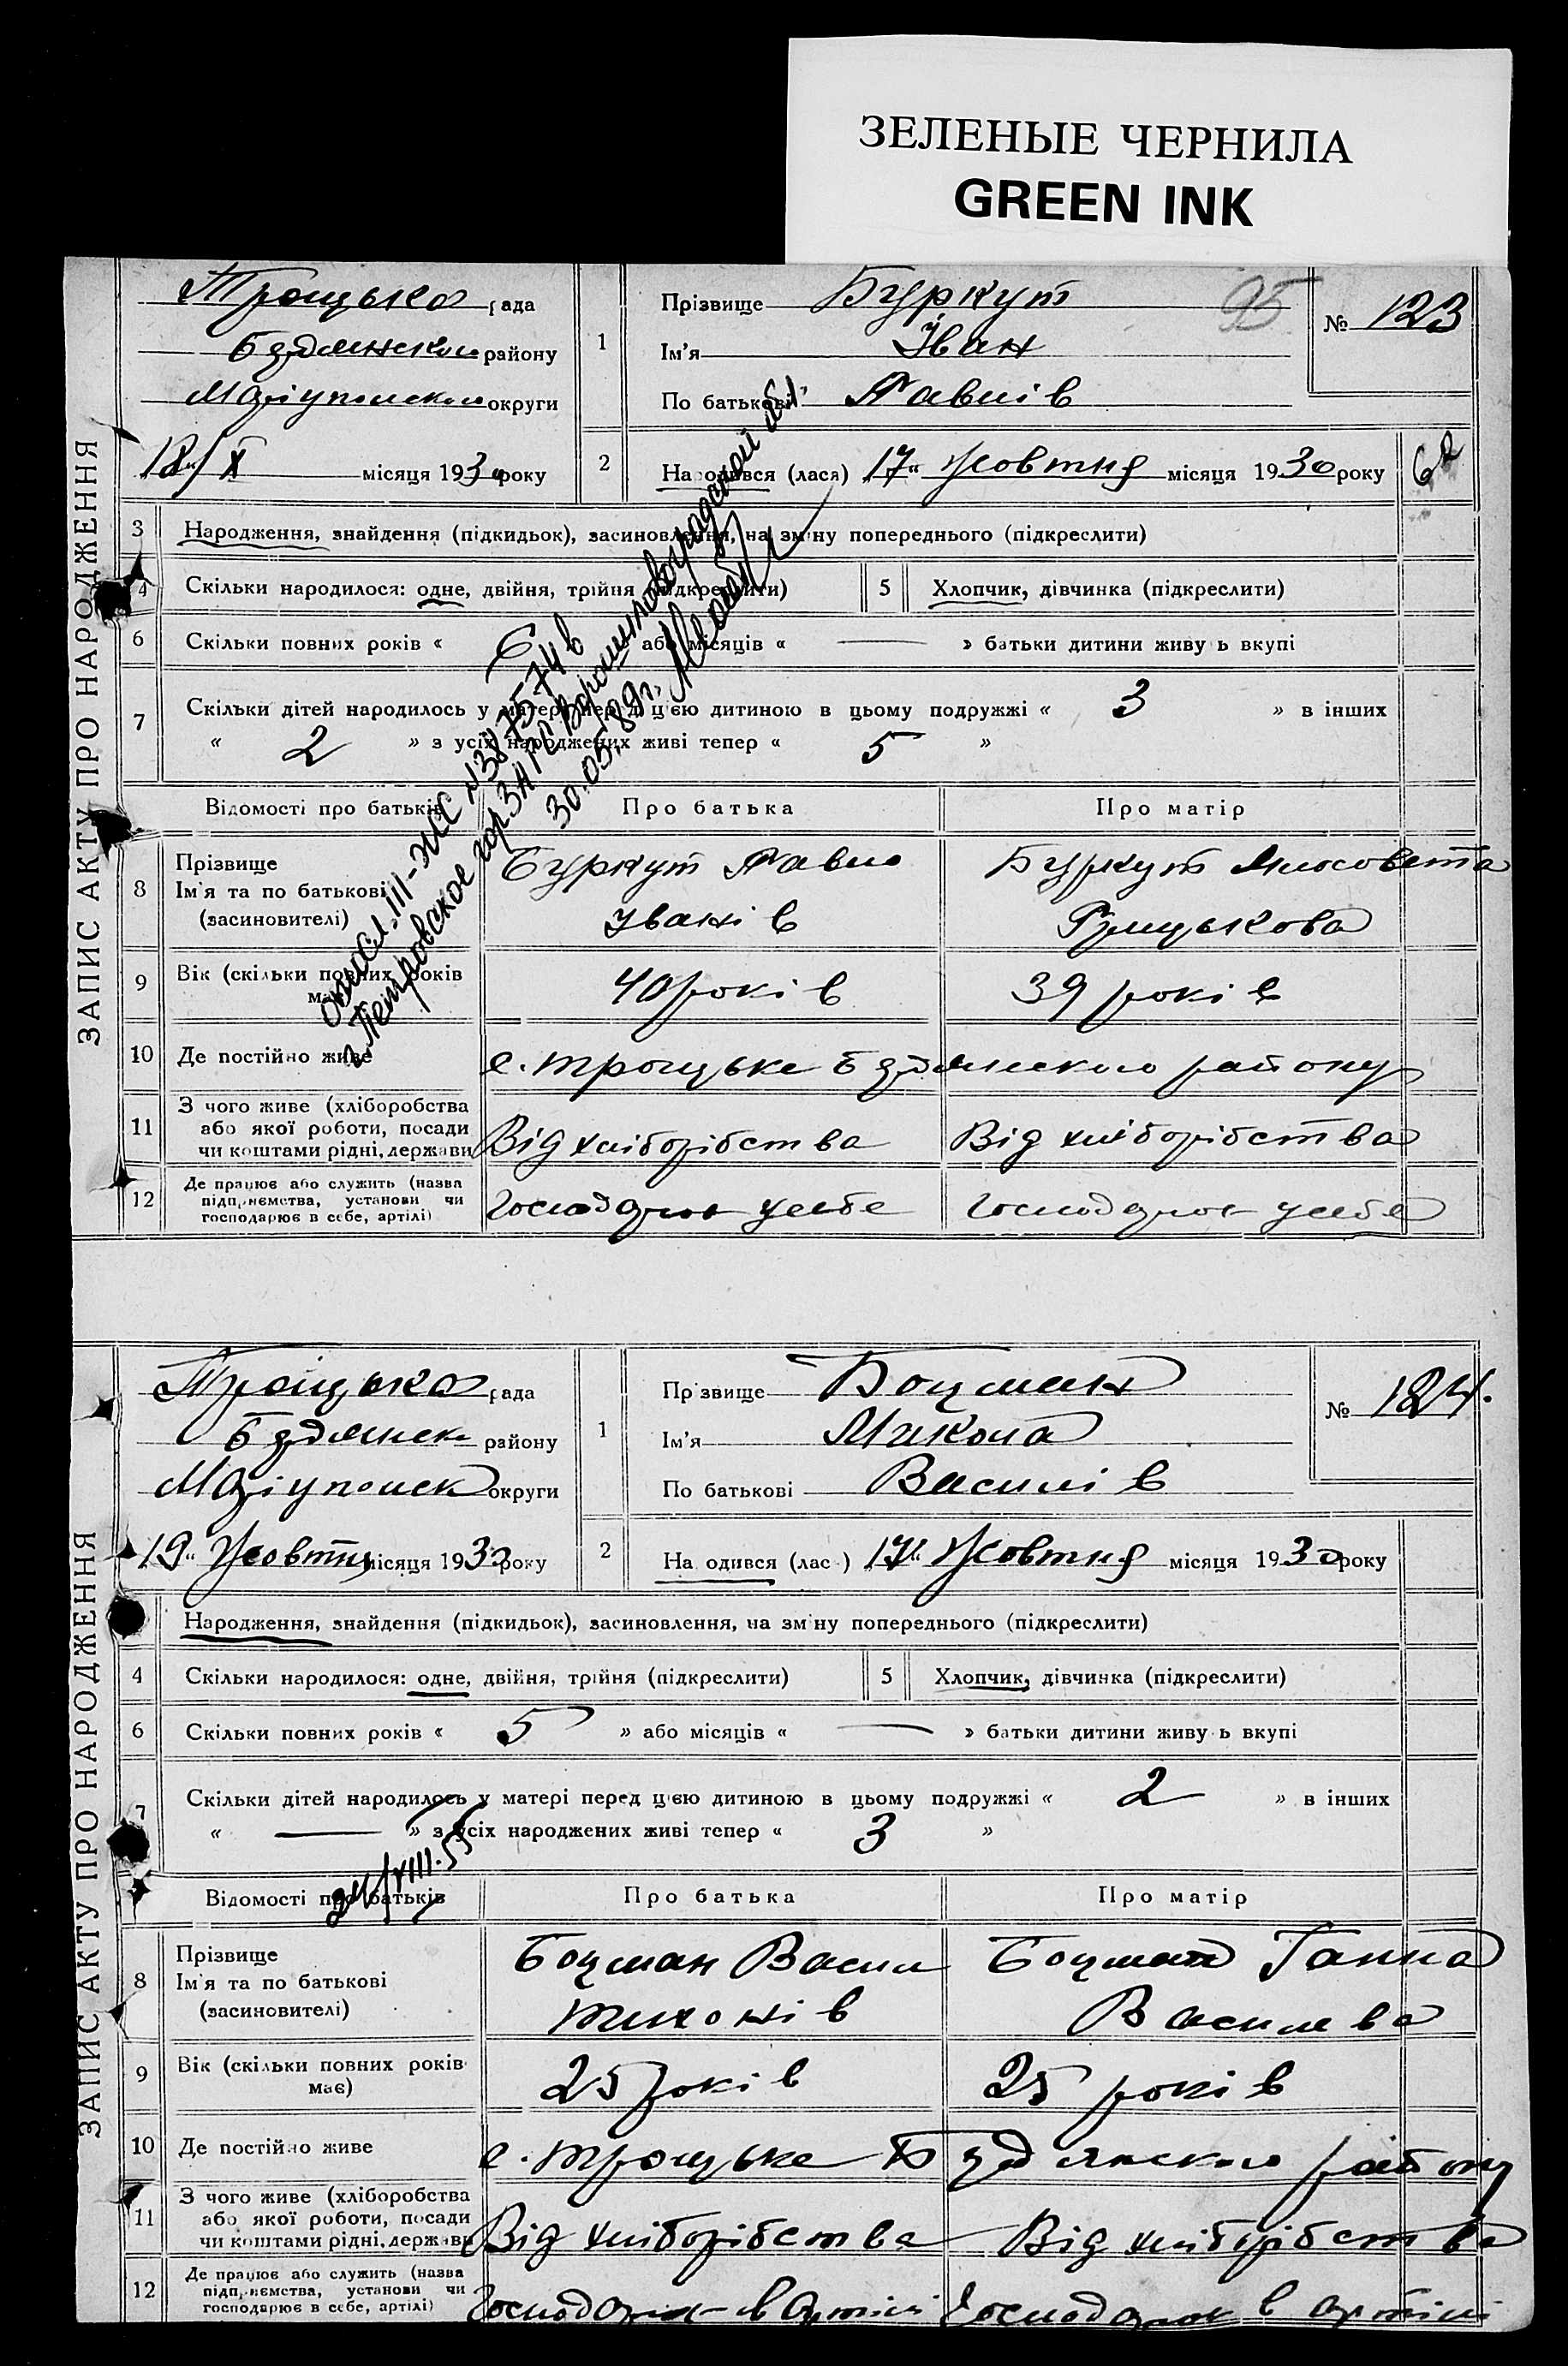 ЗЕЛЕНЫЕ ЧЕРНИЛА
GREEN INK
ЗАПИС АКТУ ПРО НАРОДЖЕННЯ
Троцька рада
району
Маріупольськ округи
18/X місяця 1930 року
1 Прізвище Буркут
Ім'я Іван
По батькові Павлів
95
№ 123
2 Народився (лася) 17" Жовтня місяця 1930 року
3 Народження, знайдення (підкидьок), засиновлення, на зміну попереднього (підкреслити)
4 Скільки народилося: одне, двійня, трійня (підкреслити) 5 Хлопчик, дівчинка (підкреслити)
6 Скільки повних років « 6 » або місяців « — » батьки дитини живуть вкупі
7 Скільки дітей народилось у матері перед цією дитиною в цьому подружжі « 3 » в інших
« 2 » з усіх народжених живі тепер « 5 »
III-ЖС №3817574 в
г. Петровское горЗАГС Ворошиловоградской обл.
30.05.89г.
Відомості про батьків Про батька Про матір
8 Прізвище
Ім'я та по батькові
(засиновителі)
Буркут Павло
Іванів
Буркут
9 Вік (скільки повних років
має)
40 років 39 років
10 Де постійно живе с. Троцьке району
11 З чого живе (хліборобства
або якої роботи, посади
чи коштами рідні, держави
Від хліборібства Від хліборібства
12 Де працює або служить (назва
підприємства, установи чи
господарює в себе, артілі)
Господарює усебе Господарює усебе
ЗАПИС АКТУ ПРО НАРОДЖЕННЯ
Троїцька рада
району
Маріупольськ округи
19" Жовтня місяця 1930 року
1 Прізвище Боцман
Ім'я Микола
По батькові Василів
№ 124.
2 Народився (лася) 17" Жовтня місяця 1930 року
Народження, знайдення (підкидьок), засиновлення, на зміну попереднього (підкреслити)
4 Скільки народилося: одне, двійня, трійня (підкреслити) 5 Хлопчик, дівчинка (підкреслити)
6 Скільки повних років « 5 » або місяців « — » батьки дитини живуть вкупі
7 Скільки дітей народилось у матері перед цією дитиною в цьому подружжі « 2 » в інших
« — » з усіх народжених живі тепер « 3 »
24/VIII.55
Відомості про батьків Про батька Про матір
8 Прізвище
Ім'я та по батькові
(засиновителі)
Боцман Васил
Тихонів
Боцман Ганна
Василева
9 Вік (скільки повних років
має)
25 років 25 років
10 Де постійно живе с. Троцьке району
11 З чого живе (хліборобства
або якої роботи, посади
чи коштами рідні, держави
Від хліборібства Від хліборібства
12 Де працює або служить (назва
підприємства, установи чи
господарює в себе, артілі)
Господарює в артілі Господарює в артілі